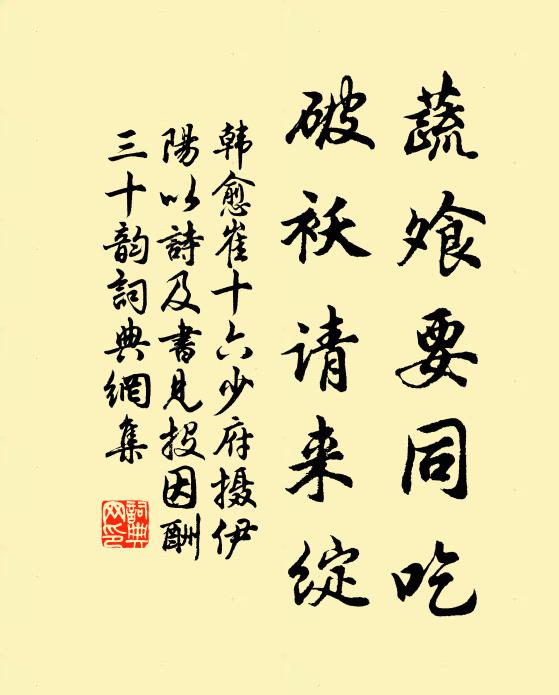 蔬飧要同吃
破袄请来绽
韩愈崔十六少府摄伊
陽以詩及書見投因酬
三十韵詞典網集
詞典网印